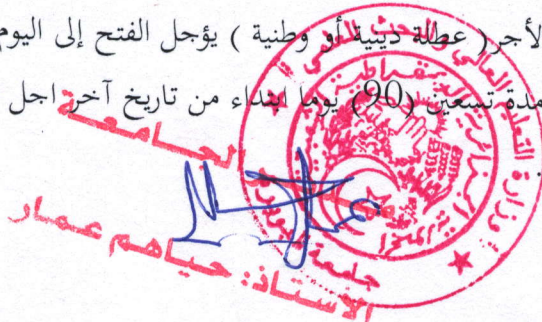 لأجر( عطلة دينية أو وطنية ) يؤجل الفتح إلى اليوم
مدة تسعين (90) يوما ابتداء من تاريخ آخر اجل
الجامعة
الأستاذ: حياهم عمار
وزارة التعليم العالي
جامعة